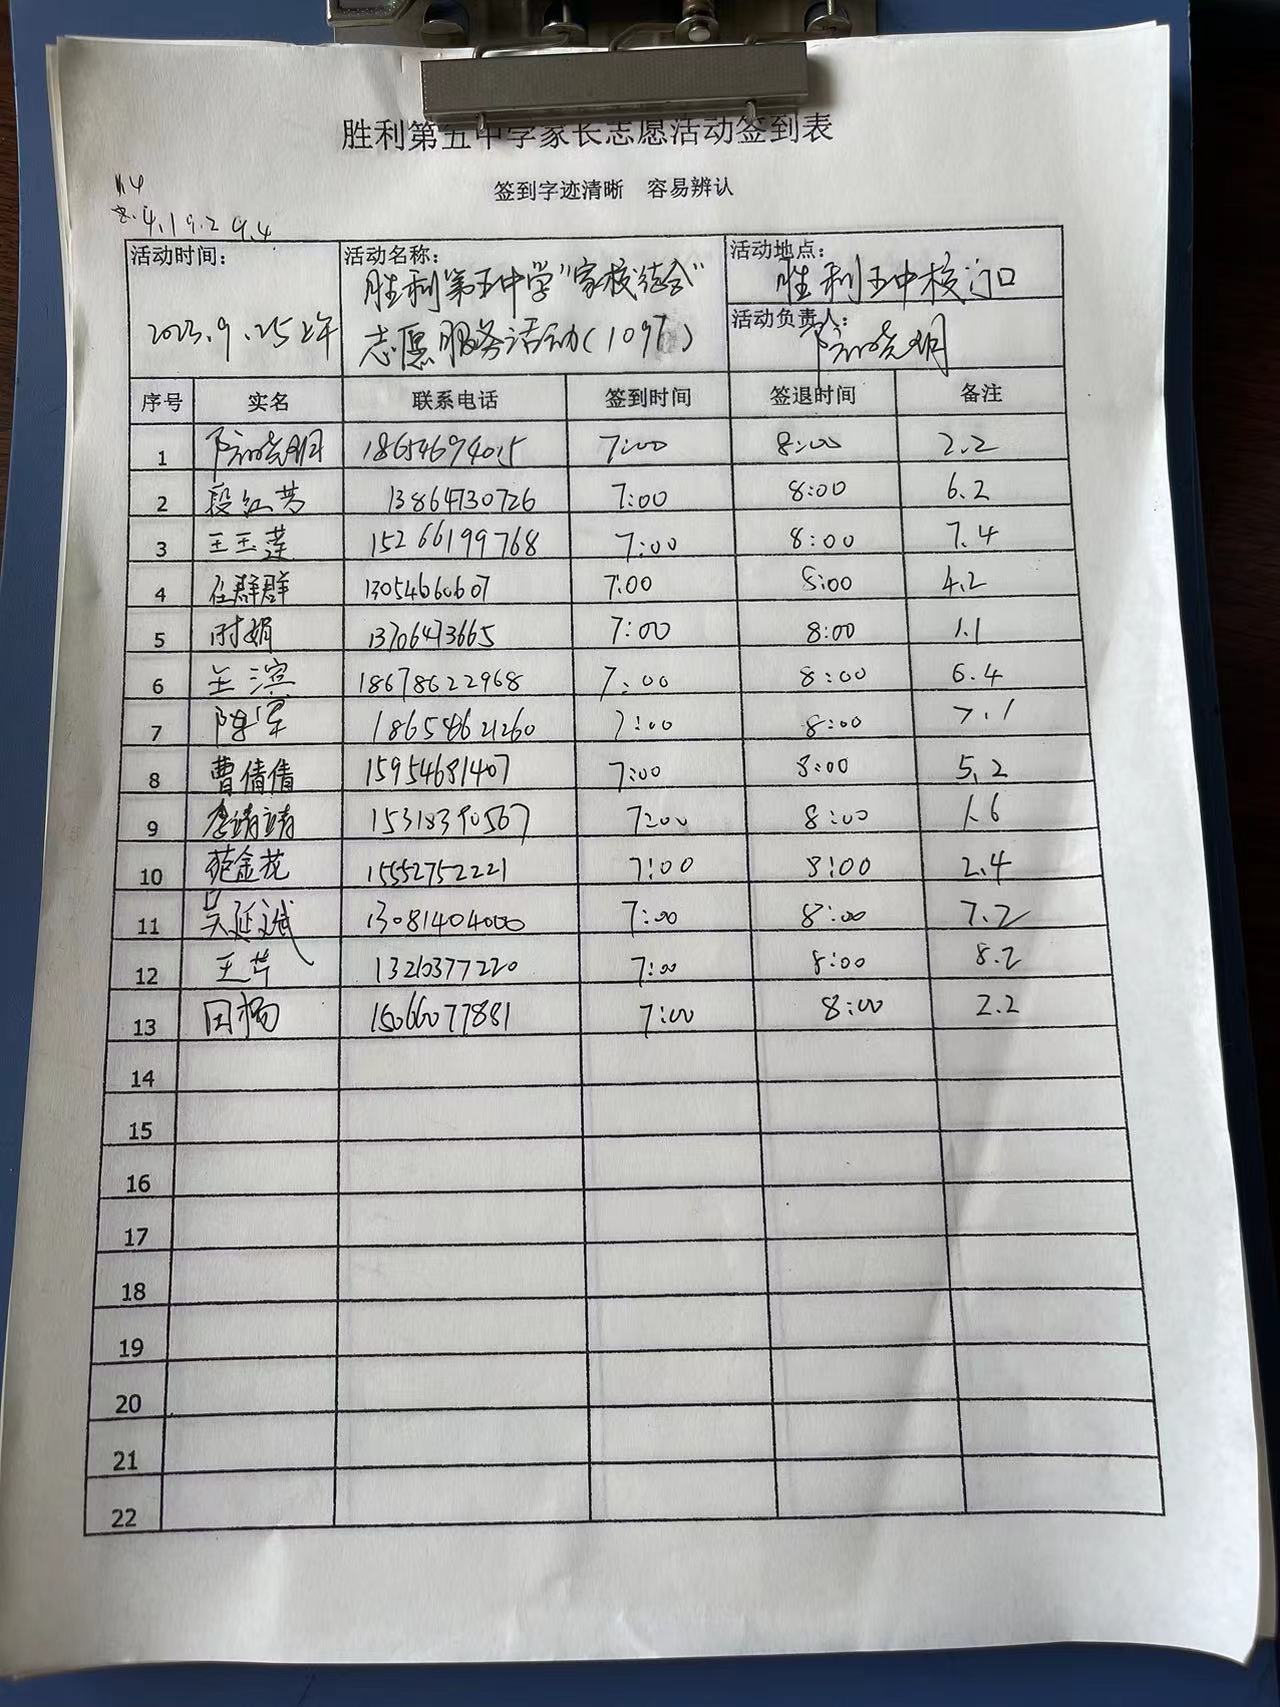 胜利第五中学家长志愿活动签到表
签到字迹清晰 容易辨认
8.4.1 9.2 9.4
活动时间: 活动名称: 活动地点:
胜利第五中学"家校结合" 胜利五中校门口
2023.9.25上午 志愿服务活动(1097) 活动负责人:
序号 实名 联系电话 签到时间 签退时间 备注
1 18654694015 7:00 8:00 2.2
2 段红芳 13864730726 7:00 8:00 6.2
3 王玉莲 15266199768 7:00 8:00 7.4
4 任群群 13054660607 7:00 8:00 4.2
5 时娟 13706473665 7:00 8:00 1.1
6 王滨 18678622968 7:00 8:00 6.4
7 陈军 18654621260 7:00 8:00 7.1
8 曹倩倩 15954681407 7:00 8:00 5.2
9 15318390567 7:00 8:00 1.6
10 范金花 15552752221 7:00 8:00 2.4
11 吴延斌 13081404000 7:00 8:00 7.2
12 王芹 13210377220 7:00 8:00 8.2
13 田杨 15066077881 7:00 8:00 2.2
14
15
16
17
18
19
20
21
22